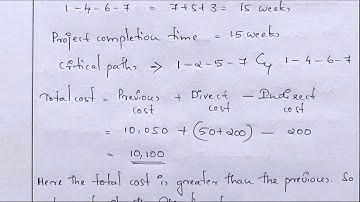 1-4-6-7 = 7+5+3 = 15 weeks
Project completion time = 15 weeks
Critical paths → 1-2-5-7 & 1-4-6-7
Total cost = Previous cost + Direct cost - Indirect cost
= 10,050 + (50+200) - 200
= 10,100
Here the total cost is greater than the previous. So